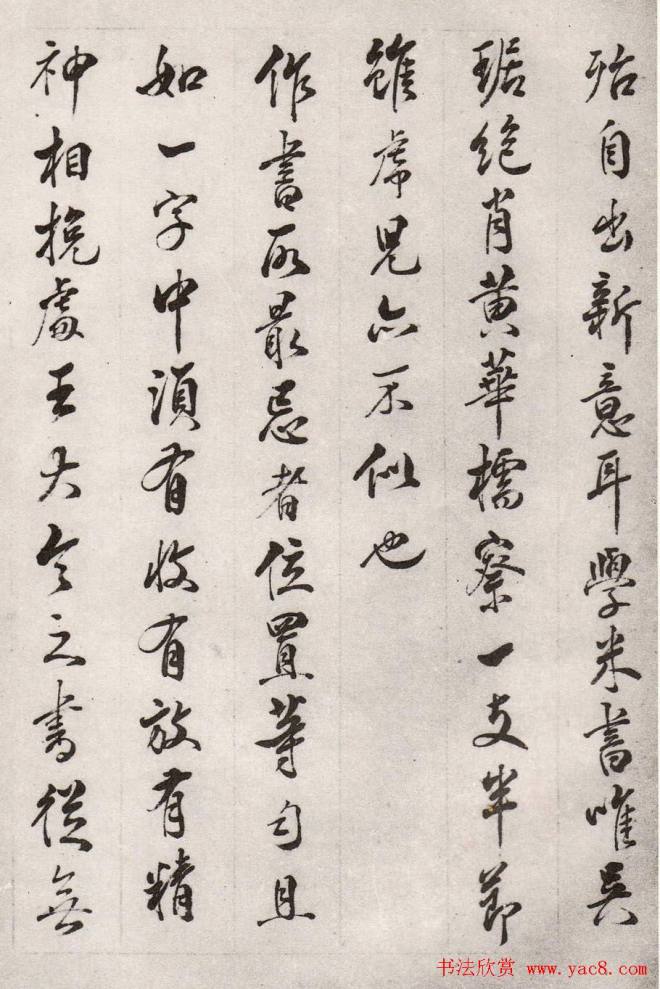 殆自出新意耳學米書唯吳
琚絶肖黄華樗寮一支半節
雖虎兒亦不似也
作書所最忌者位置等勻且
如一字中須有收有放有精
神相挽處王大令之書從無
书法欣赏 www.yac8.com